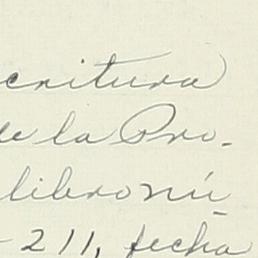 critura
de la Pro-
libro nú-
- 211, fecha